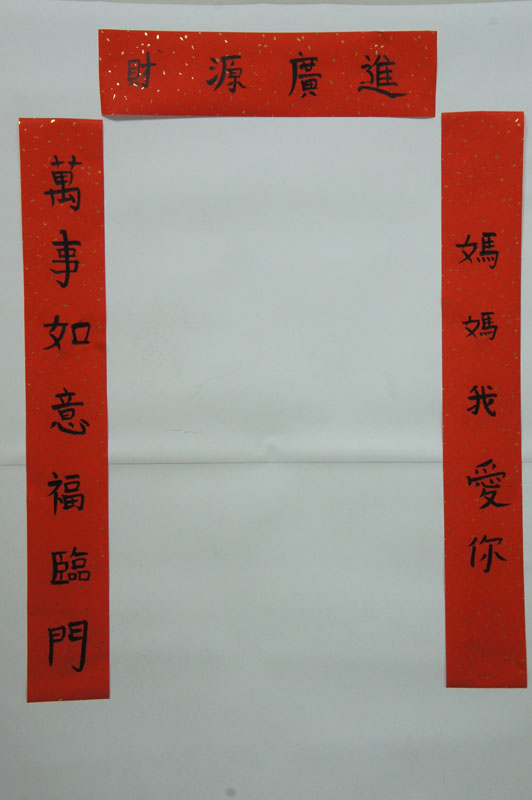 財源廣進
媽媽我愛你
萬事如意福臨門